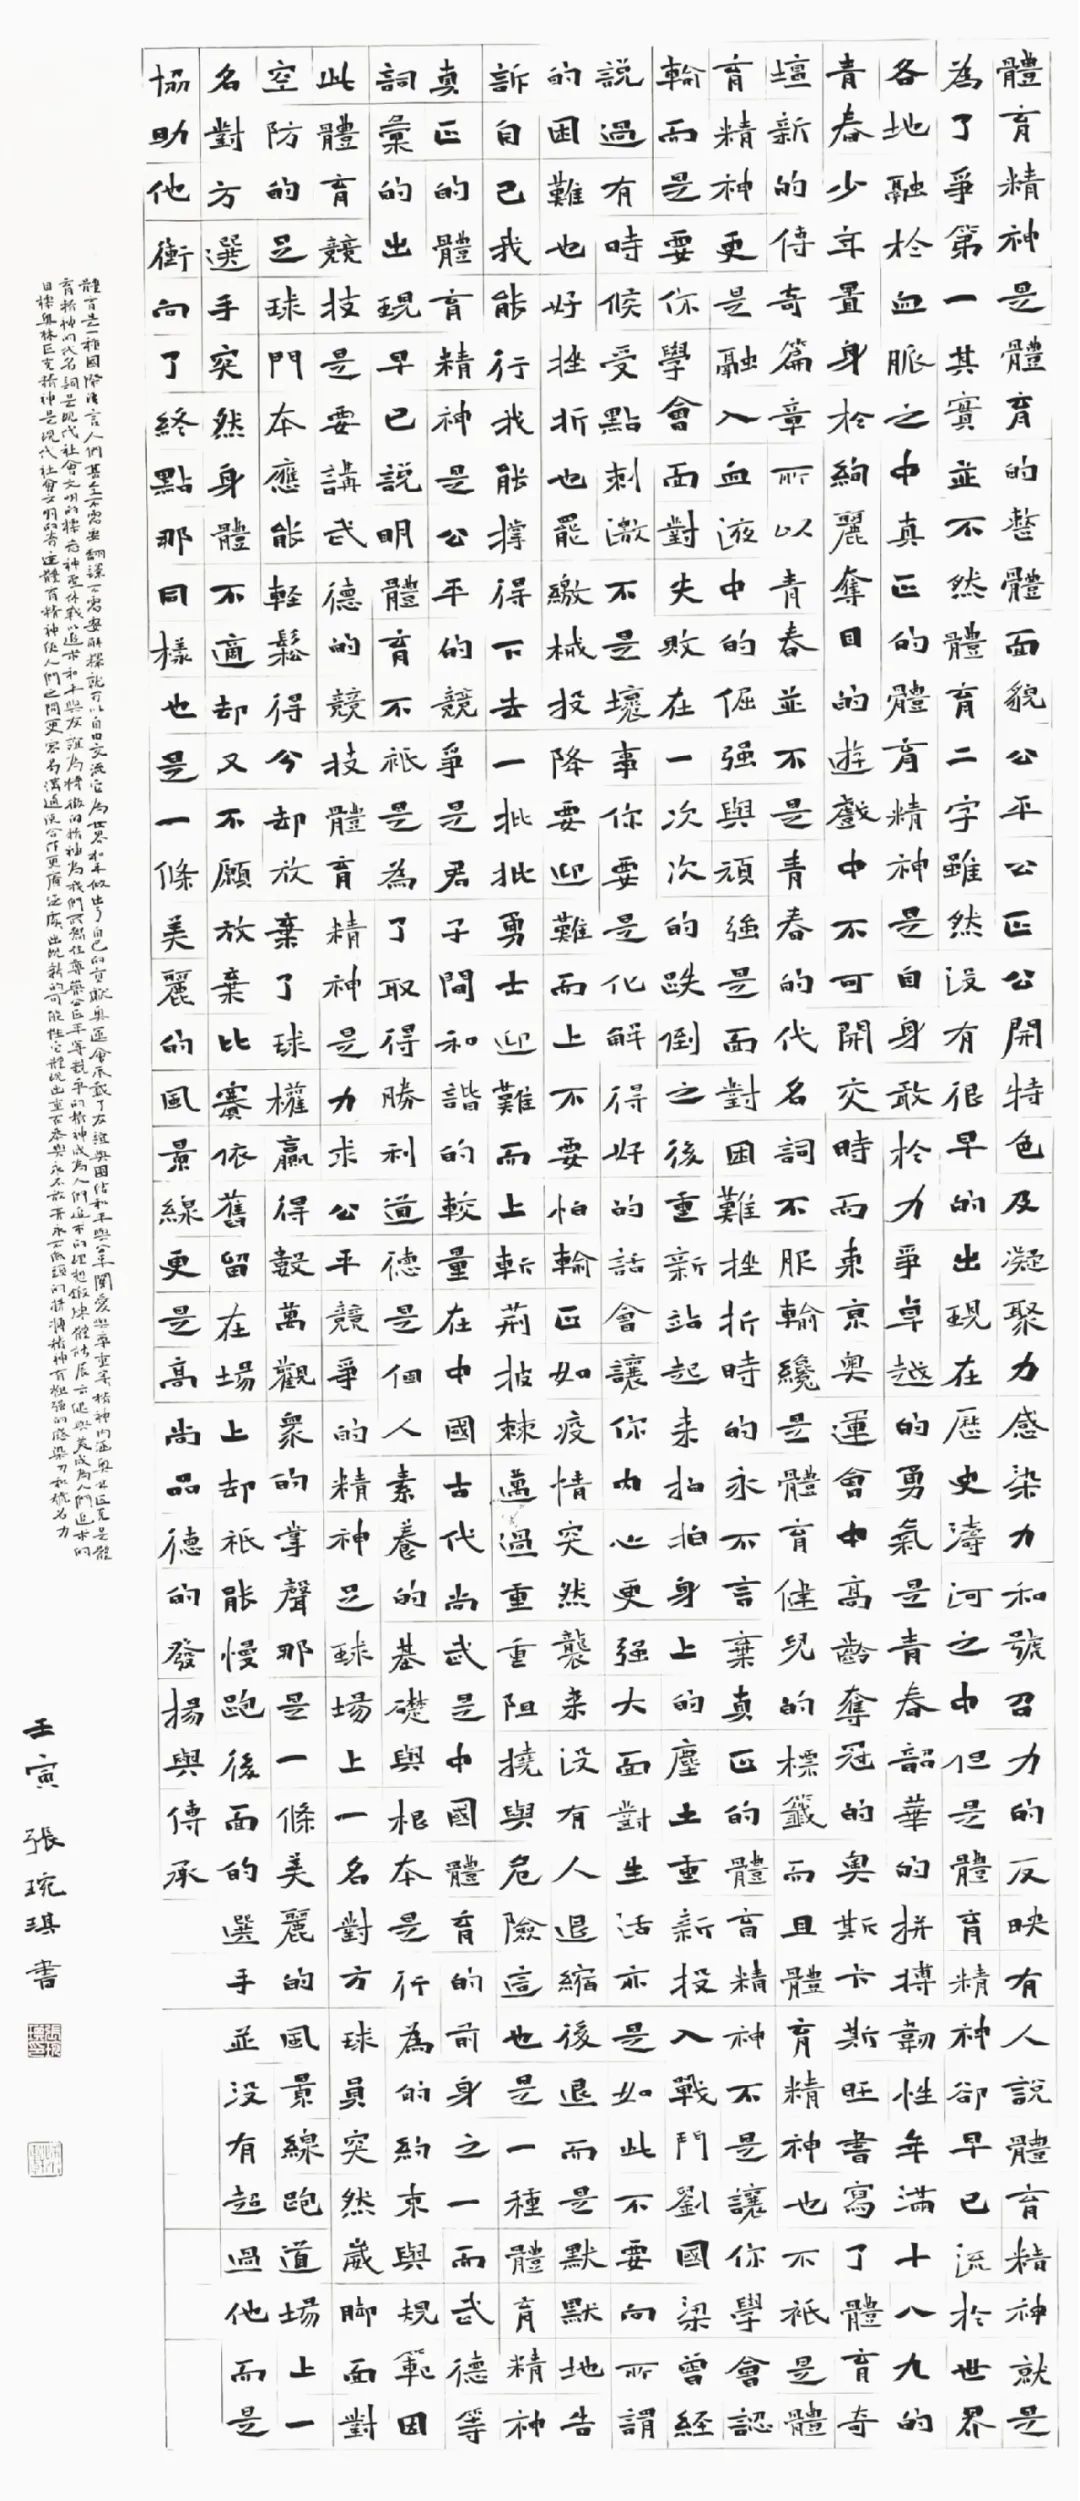 體育精神是體育的整體面貌公平公正公開特色及凝聚力感染力和號召力的反映有人說體育精神就是
為了爭第一其實並不然體育二字雖然沒有很早的出現在歷史濤河之中但是體育精神卻早已流於世界
各地融於血脈之中真正的體育精神是自身敢於力爭卓越的勇氣是青春韶華的拼搏韌性年滿十八九的
青春少年置身於絢麗奪目的遊戲中不可開交時而東京奧運會中高齡奪冠的奧斯卡斯旺書寫了體育奇
壇新的傳奇篇章所以青春並不是青春的代名詞不服輸纔是體育健兒的標籤而且體育精神也不祇是體
育精神更是融入血液中的倔强與頑强是面對困難挫折時的永不言棄真正的體育精神不是讓你學會認
輸而是要你學會面對失敗在一次次的跌倒之後重新站起来拍拍身上的塵土重新投入戰鬥劉國梁曾經
說過有時候受點刺激不是壞事你要是化解得好的話會讓你内心更强大面對生活亦是如此不要向所謂
的困難也好挫折也罷繳械投降要迎難而上不要怕輸正如疫情突然襲来沒有人退縮後退而是默默地告
訴自己我能行我能撐得下去一批批勇士迎難而上斬荊披棘邁過重重阻撓與危險這也是一種體育精神
真正的體育精神是公平的競爭是君子間和諧的較量在中國古代尚武是中國體育的前身之一而武德等
詞彙的出現早已說明體育不祇是為了取得勝利道德是個人素養的基礎與根本是行為的約束與規範因
此體育競技是要講武德的競技體育精神是力求公平競爭的精神足球場上一名對方球員突然崴脚面對
空防的足球門本應能輕鬆得分却放棄了球權贏得數萬觀衆的掌聲那是一條美麗的風景線跑道場上一
名對方選手突然身體不適却又不願放棄比賽依舊留在場上却祇能慢跑後面的選手並沒有超過他而是
協助他衝向了終點那同樣也是一條美麗的風景線更是高尚品德的發揚與傳承
體育是一種國際語言人們甚至不需要翻譯不需要解釋就可以自由交流它為世界和平做出了自己的貢獻奧運會承載了友誼與團結和平與公平關愛與尊重等精神内涵奧林匹克是體
育精神的代名詞是現代社會文明的標志神聖休戰以追求和平與友誼為特徵的精神為我們所尊崇公正平等競爭的精神成為人們追求的理想鍛煉體能展示健與美成為人們追求的
目標奧林匹克精神是現代社會文明的奇迹體育精神使人們之間更容易溝通使合作更廣泛出現新的可能性它體現出重在參與永不放棄永不低頭的拼搏精神有極强的感染力和號召力
壬寅 張琬琪書